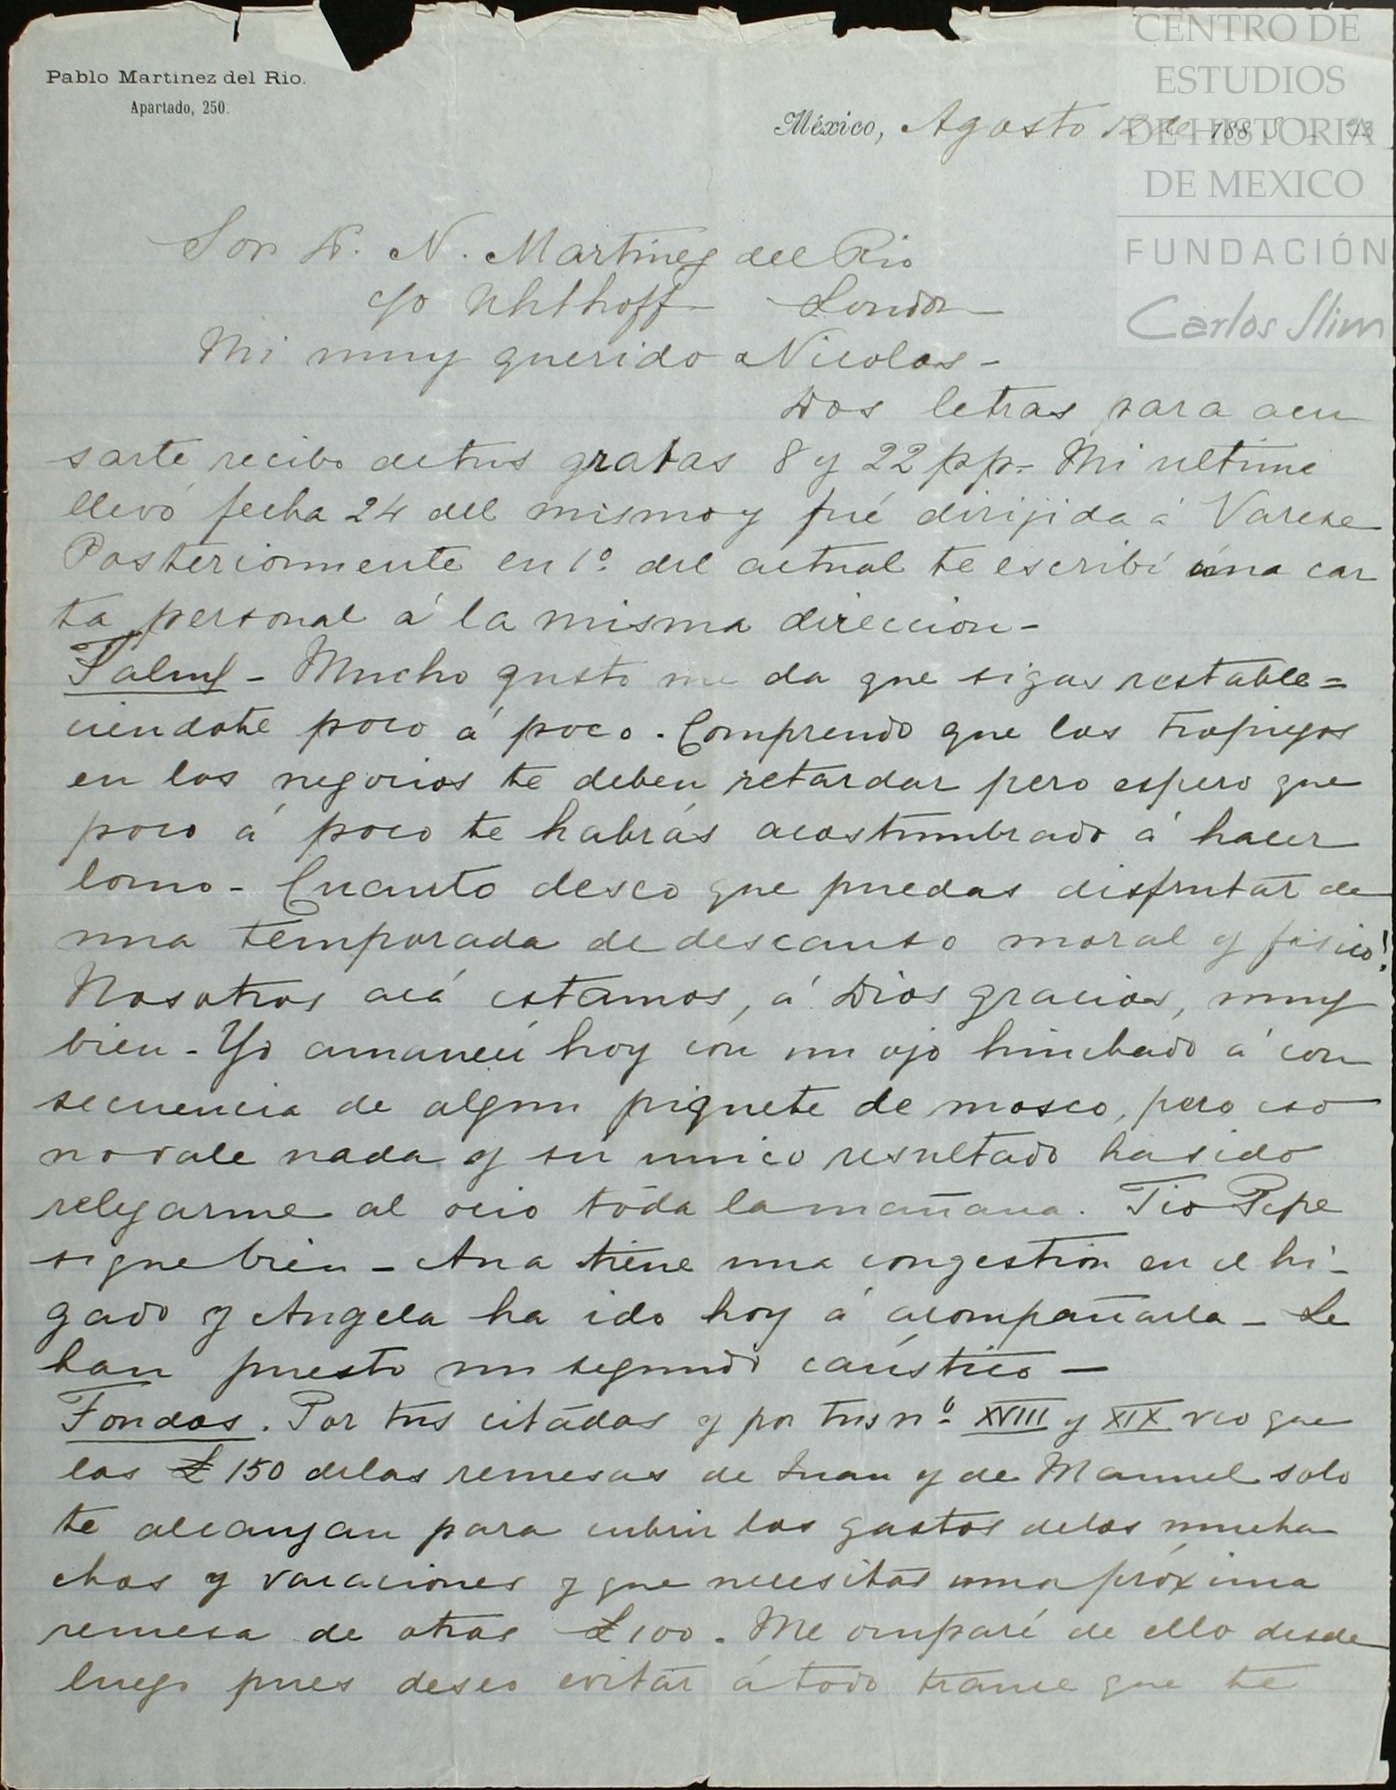 CENTRO DE
ESTUDIOS
DE HISTORIA
DE MEXICO
FUNDACIÓN
Carlos Slim
Pablo Martinez del Rio.
Apartado, 250.
México, Agosto 12 de 188
Sor D. N. Martinez del Rio
c/o Uhthoff London
Mi muy querido Nicolas -
Dos letras para acu
sarte recibo de tus gratas 8 y 22 pp - Mi ultima
llevó fecha 24 del mismo y fué dirijida á Varese
Posteriormente en 1º del actual te escribí una car
ta personal á la misma direccion -
Salud - Mucho gusto me da que sigas restable=
ciendote poco á poco. Comprendo que los tropiezos
en los negocios te deben retardar pero espero que
poco á poco te habrás acostumbrado á hacer
lomo - Cuanto deseo que puedas disfrutar de
una temporada de descanso moral y fisico!
Nosotros acá estamos, á Dios gracias, muy
bien - Yo amanecí hoy con un ojo hinchado á con
secuencia de algun piquete de mosco, pero eso
no vale nada y su unico resultado ha sido
relegarme al ocio toda la mañana. Tio Pepe
sigue bien - Ana tiene una congestion en el hi-
gado y Angela ha ido hoy á acompañarla - Le
han puesto un segundo caústico -
Fondos. Por tus citadas y por tus nº XVIII y XIX veo que
las £150 de las remesas de Juan y de Manuel solo
te alcanzan para cubrir los gastos de los mucha
chos y vacaciones y que necesitas una próxima
remesa de otras £100. Me ocuparé de ello desde
luego pues deseo evitar á todo trance que te